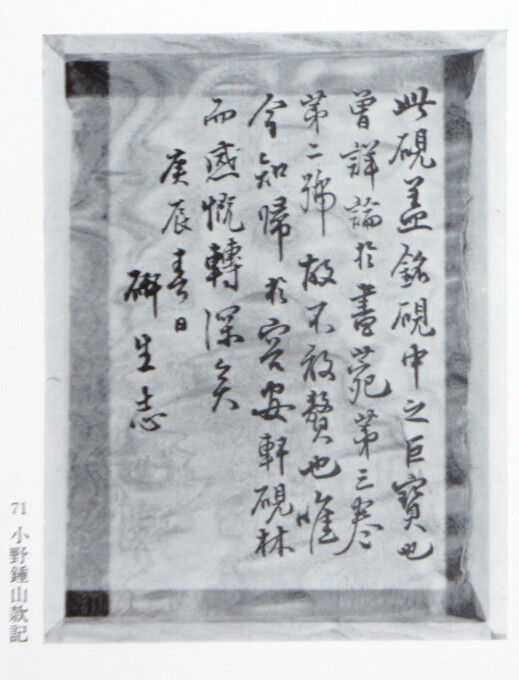 此硯蓋銘硯中之巨寶也
曾詳論於書苑第三巻
第二號故不敢贅也唯
今知歸於容安軒硯林
而感慨轉深矣
庚辰春日
硏生志
71 小野鍾山款記